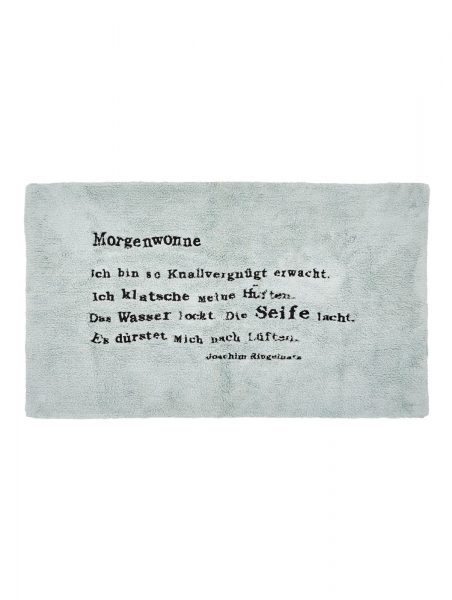 Morgenwonne
Ich bin so Knallvergnügt erwacht.
Ich klatsche meine Hüften.
Das Wasser lockt. Die Seife lacht.
Es dürstet Mich nach Lüften.
Joachim Ringelnatz